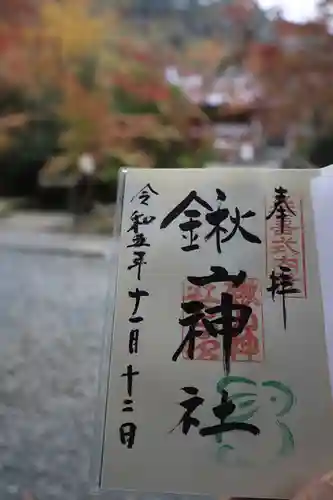 奉拝
鍬山神社
令和五年十一月十二日